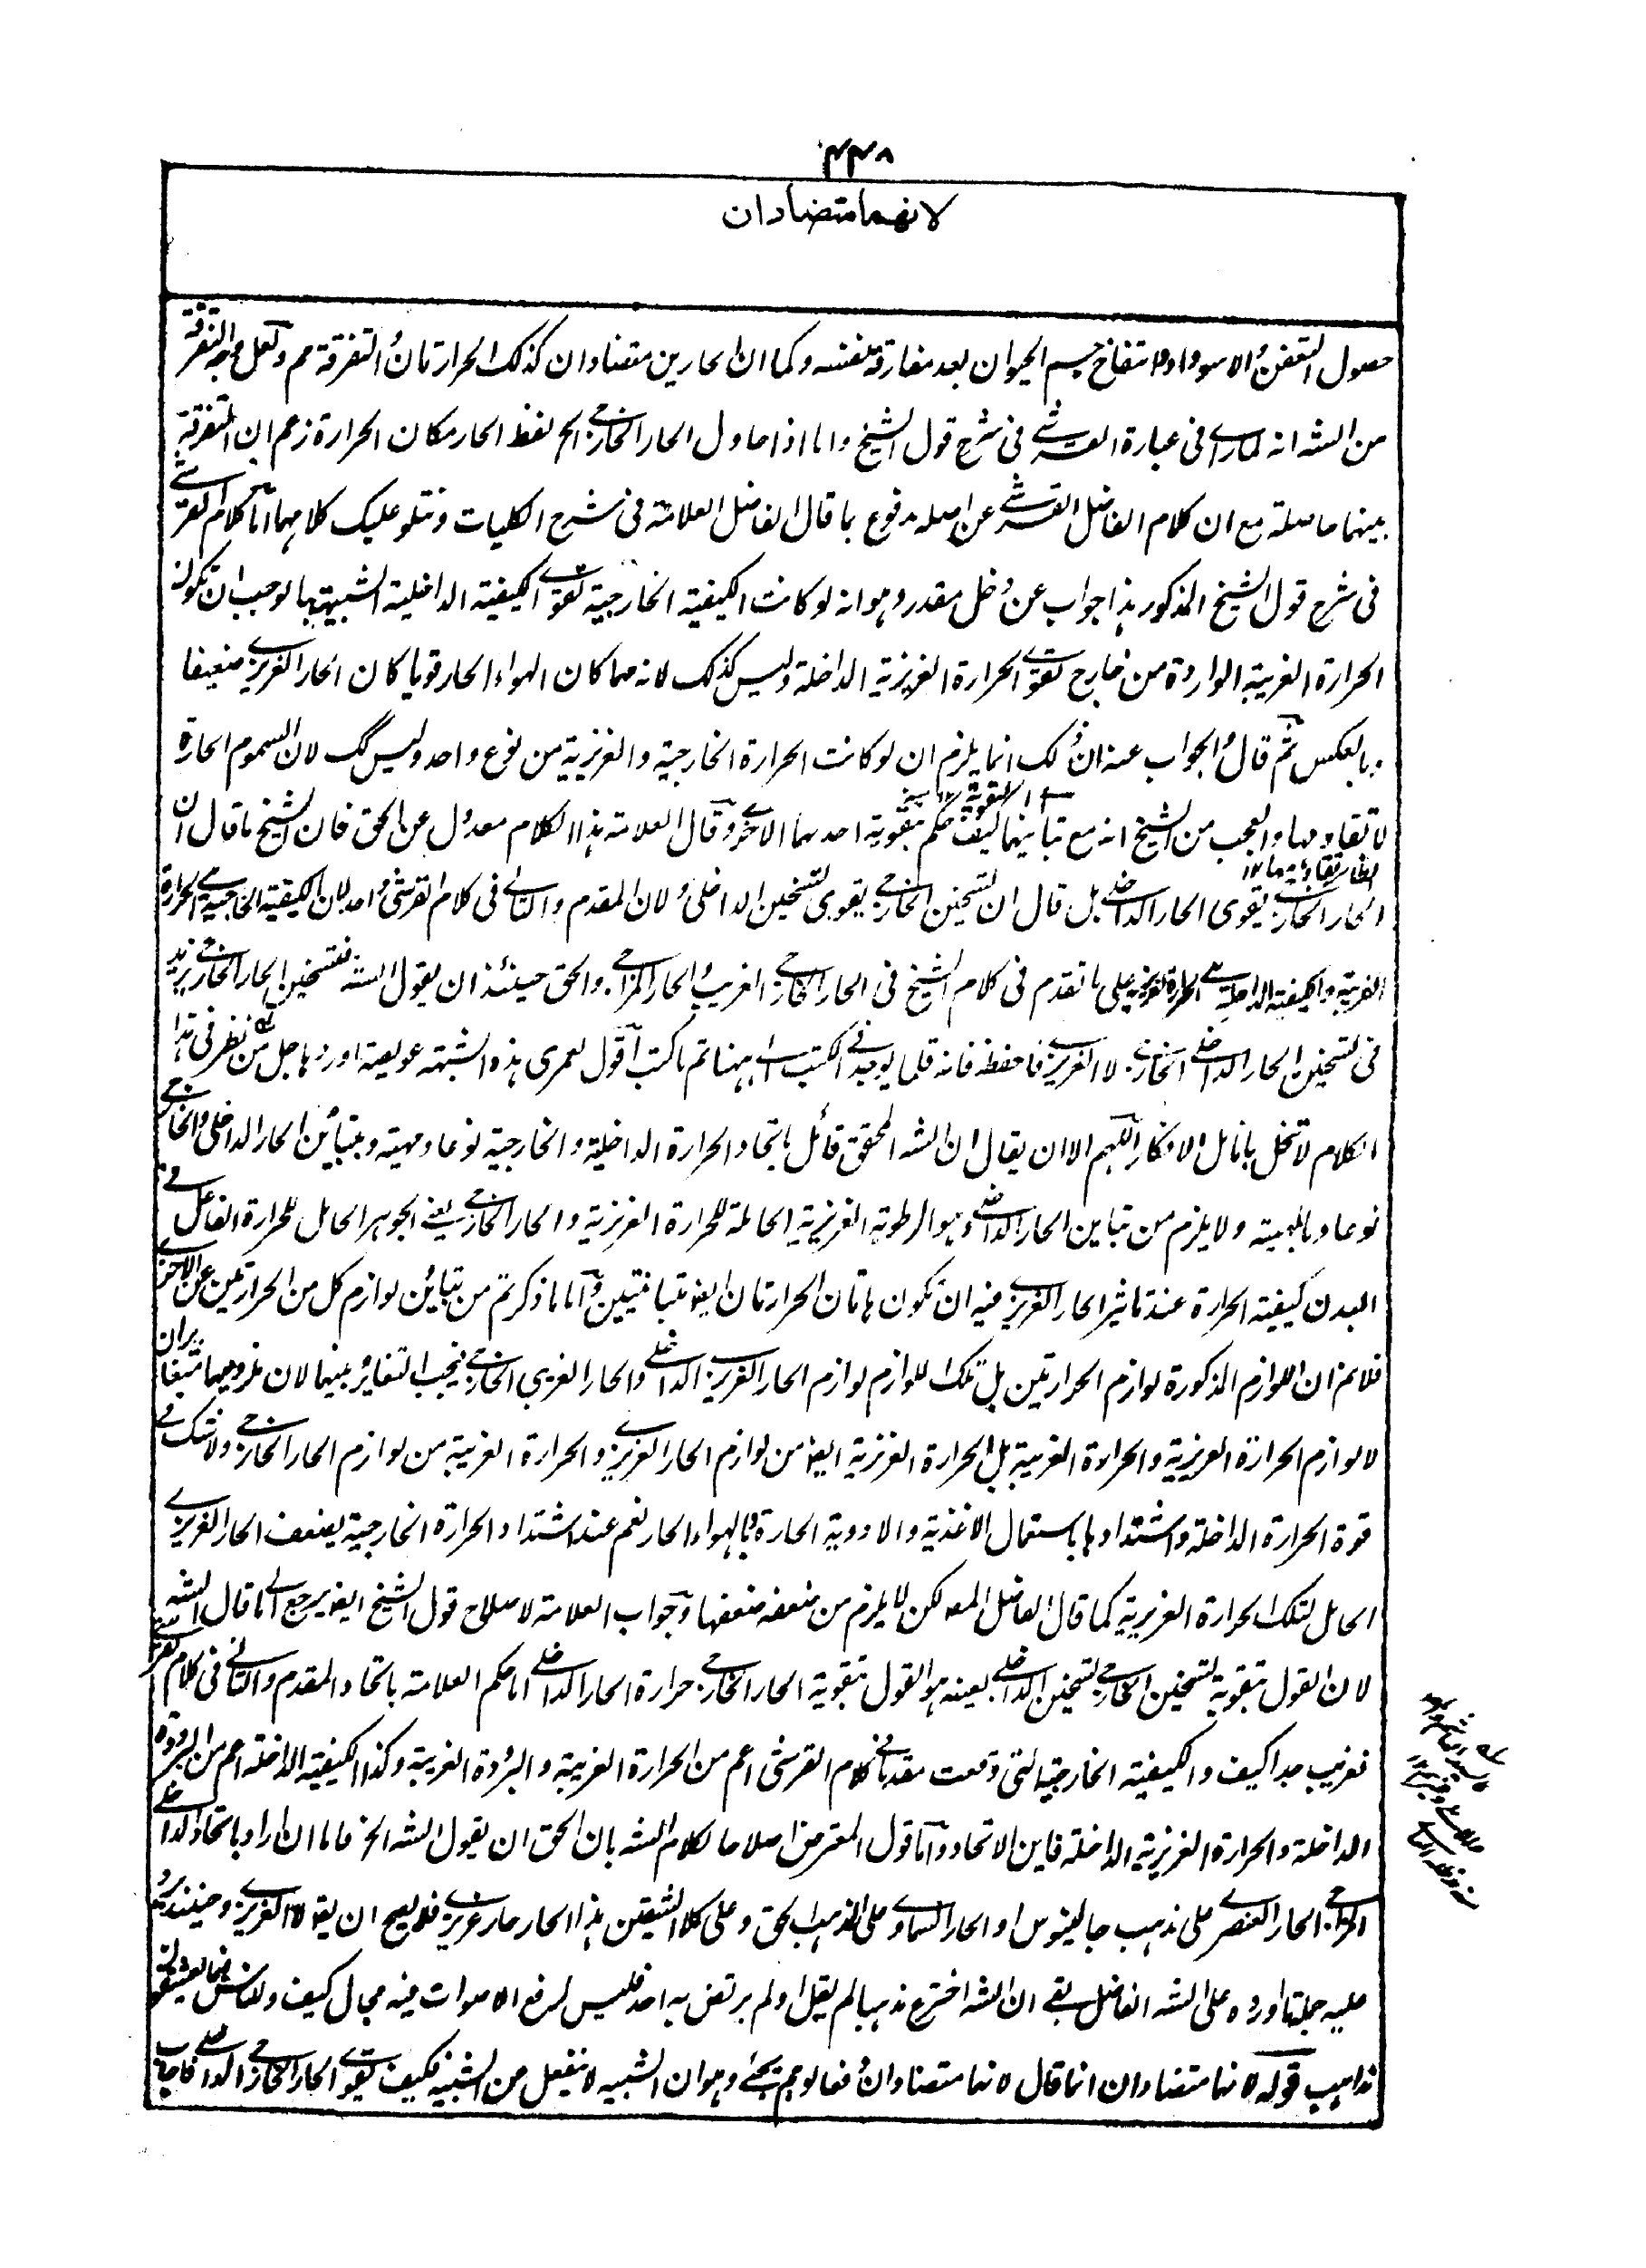 ۴۴۸
لانهما متضادان
حصول التعفن والاسوداد والانتفاخ جسم الحيوان بعد مفارقة نفسه وكما ان الحارين متضادان كذلك الحرارتان والتفرقة مم ولعل وجه التفرقة
من الشه انه لما رای فی عبارة القرشے فی شرح قول الشيخ واما اذا حاول الحار الخارجے الخ لفظ الحار مكان الحرارة زعم ان التفرقة
بينهما حاصلة مع ان كلام الفاضل القرشے عن اصله مدفوع بما قال الفاضل العلامة فی شرح الكليات ونتلو عليك كلامهما اما كلام القرشے
فی شرح قول الشيخ المذكور هذا جواب عن دخل مقدر وهو انه لو كانت الكيفية الخارجية تقوے الكيفية الداخلية الشبيهة بها لوجب ان تكون
الحرارة الغريبة الواردة من خارج تقوے الحرارة الغريزية الداخلة وليس كذلك لانه مهما كان الهواء الحار قويا كان الحار الغريزے ضعيفا
وبالعكس ثم قال والجواب عنه ان ذلك انما يلزم ان لو كانت الحرارة الخارجية والغريزية من نوع واحد وليس كك لان السموم الحارة
لا تقاومها والعجب من الشيخ انه مع تباينهما كيف حكم بتقوية احدهما الاخرے وقال العلامة هذا الكلام معدول عن الحق فان الشيخ ما قال ان
الحار الخارجے يقوی الحار الداخلے بل قال ان تسخين الخارجے يقوی تسخين الداخلی ولان المقدم والتالے فی كلام القرشی واحد لان الكيفية الخارجية هے الحرارة
الغريبة والكيفية الداخلية هے الحرارة الغريزية علی ما تقدم فی كلام الشيخ فی الحار الخارجے الغريب والحار المزاجے والحق حينئذ ان يقول الشه فتسخين الحار الخارجے يزيد
فی تسخين الحار الداخلے الخارجے لا الغريزے فاحفظ فانه قلما يوجد فے الكتب الی ههنا تم ما كتب اقول لعمری هذه الشبهة عويصة اوردها جل من نظر فی هذا
الكلام لا تنحل بانامل الافكار اللهم الا ان يقال ان الشه المحقق قائل باتحاد الحرارة الداخلية والخارجية نوعا ومهية وبتباين الحار الداخلی والخارجے
نوعا وبالمهية ولا يلزم من تباين الحار الداخلے وهو الرطوبة الغريزية الحاملة للحرارة الغريزية والحار الخارجے يعنے الجوهر الحامل للحرارة الفاعل فے
البدن كيفية الحرارة عند تاثير الحار الغريزے فيه ان تكون هاتان الحرارتان ايضو متباينتين واما ما ذكرتم من تباين لوازم كل من الحرارتين عن الاخرے
فلانم ان اللوازم المذكورة لوازم الحرارتين بل تلك اللوازم لوازم الحار الغريزے الداخلے والحار الغريب الخارجے فيجب التغاير بينهما لان ملزوميهما متغايران
لا لوازم الحرارة الغريزية والحرارة الغريبة بل الحرارة الغريزية ايضا من لوازم الحار الغريزے والحرارة الغريبة من لوازم الحار الخارجے ولا شك فے
قوة الحرارة الداخلة واشتدادها باستعمال الاغذية والادوية الحارة وبالهواء الحار نعم عند اشتداد الحرارة الخارجية يضعف الحار الغريزے
الحامل لتلك الحرارة الغريزية كما قال الفاضل المصو لكن لا يلزم من ضعفه ضعفها وجواب العلامة لاصلاح قول الشيخ ايضو يرجع الے ما قال الشه
لان القول بتقوية تسخين الخارجے لتسخين الداخلے بعينه هو القول بتقوية الحار الخارجے حرارة الحار الداخلے اما حكم العلامة باتحاد المقدم والتالے فی كلام القرشے
فغريب جدا كيف والكيفية الخارجية التی وقعت مقدما فے كلام القرشی اعم من الحرارة الغريبة والبرودة الغريبة وكذا الكيفية الداخلة اعم من البرودة
الداخلة والحرارة الغريزية الداخلة فاين الاتحاد واما قول المعترض اصلاحا لكلام الشه بان الحق ان يقول الشه الخ فاما ان اراد باتحاد الداخلے
المزاجے الحار العنصرے علی مذهب جالينوس او الحار السماوے علی المذهب الحق وعلی كلا الشقين هذا الحار حار غريزے فلا يصح ان يقول لا الغريزے وحينئذ يرد
عليه جملة ما اورده علی الشه الفاضل بقے ان الشه اخترع مذهبا لم يقل او لم يرتض به احد فليس لرفع الاصوات فيه مجال كيف وللناس فيما يعشقون
مذاهب قوله لانهما متضادان انما قال لانهما متضادان دفعا لوهم يجئے وهو ان الشبيه لا ينفعل من الشبيه فكيف يقوے الحار الخارجے الداخلے فاجاب